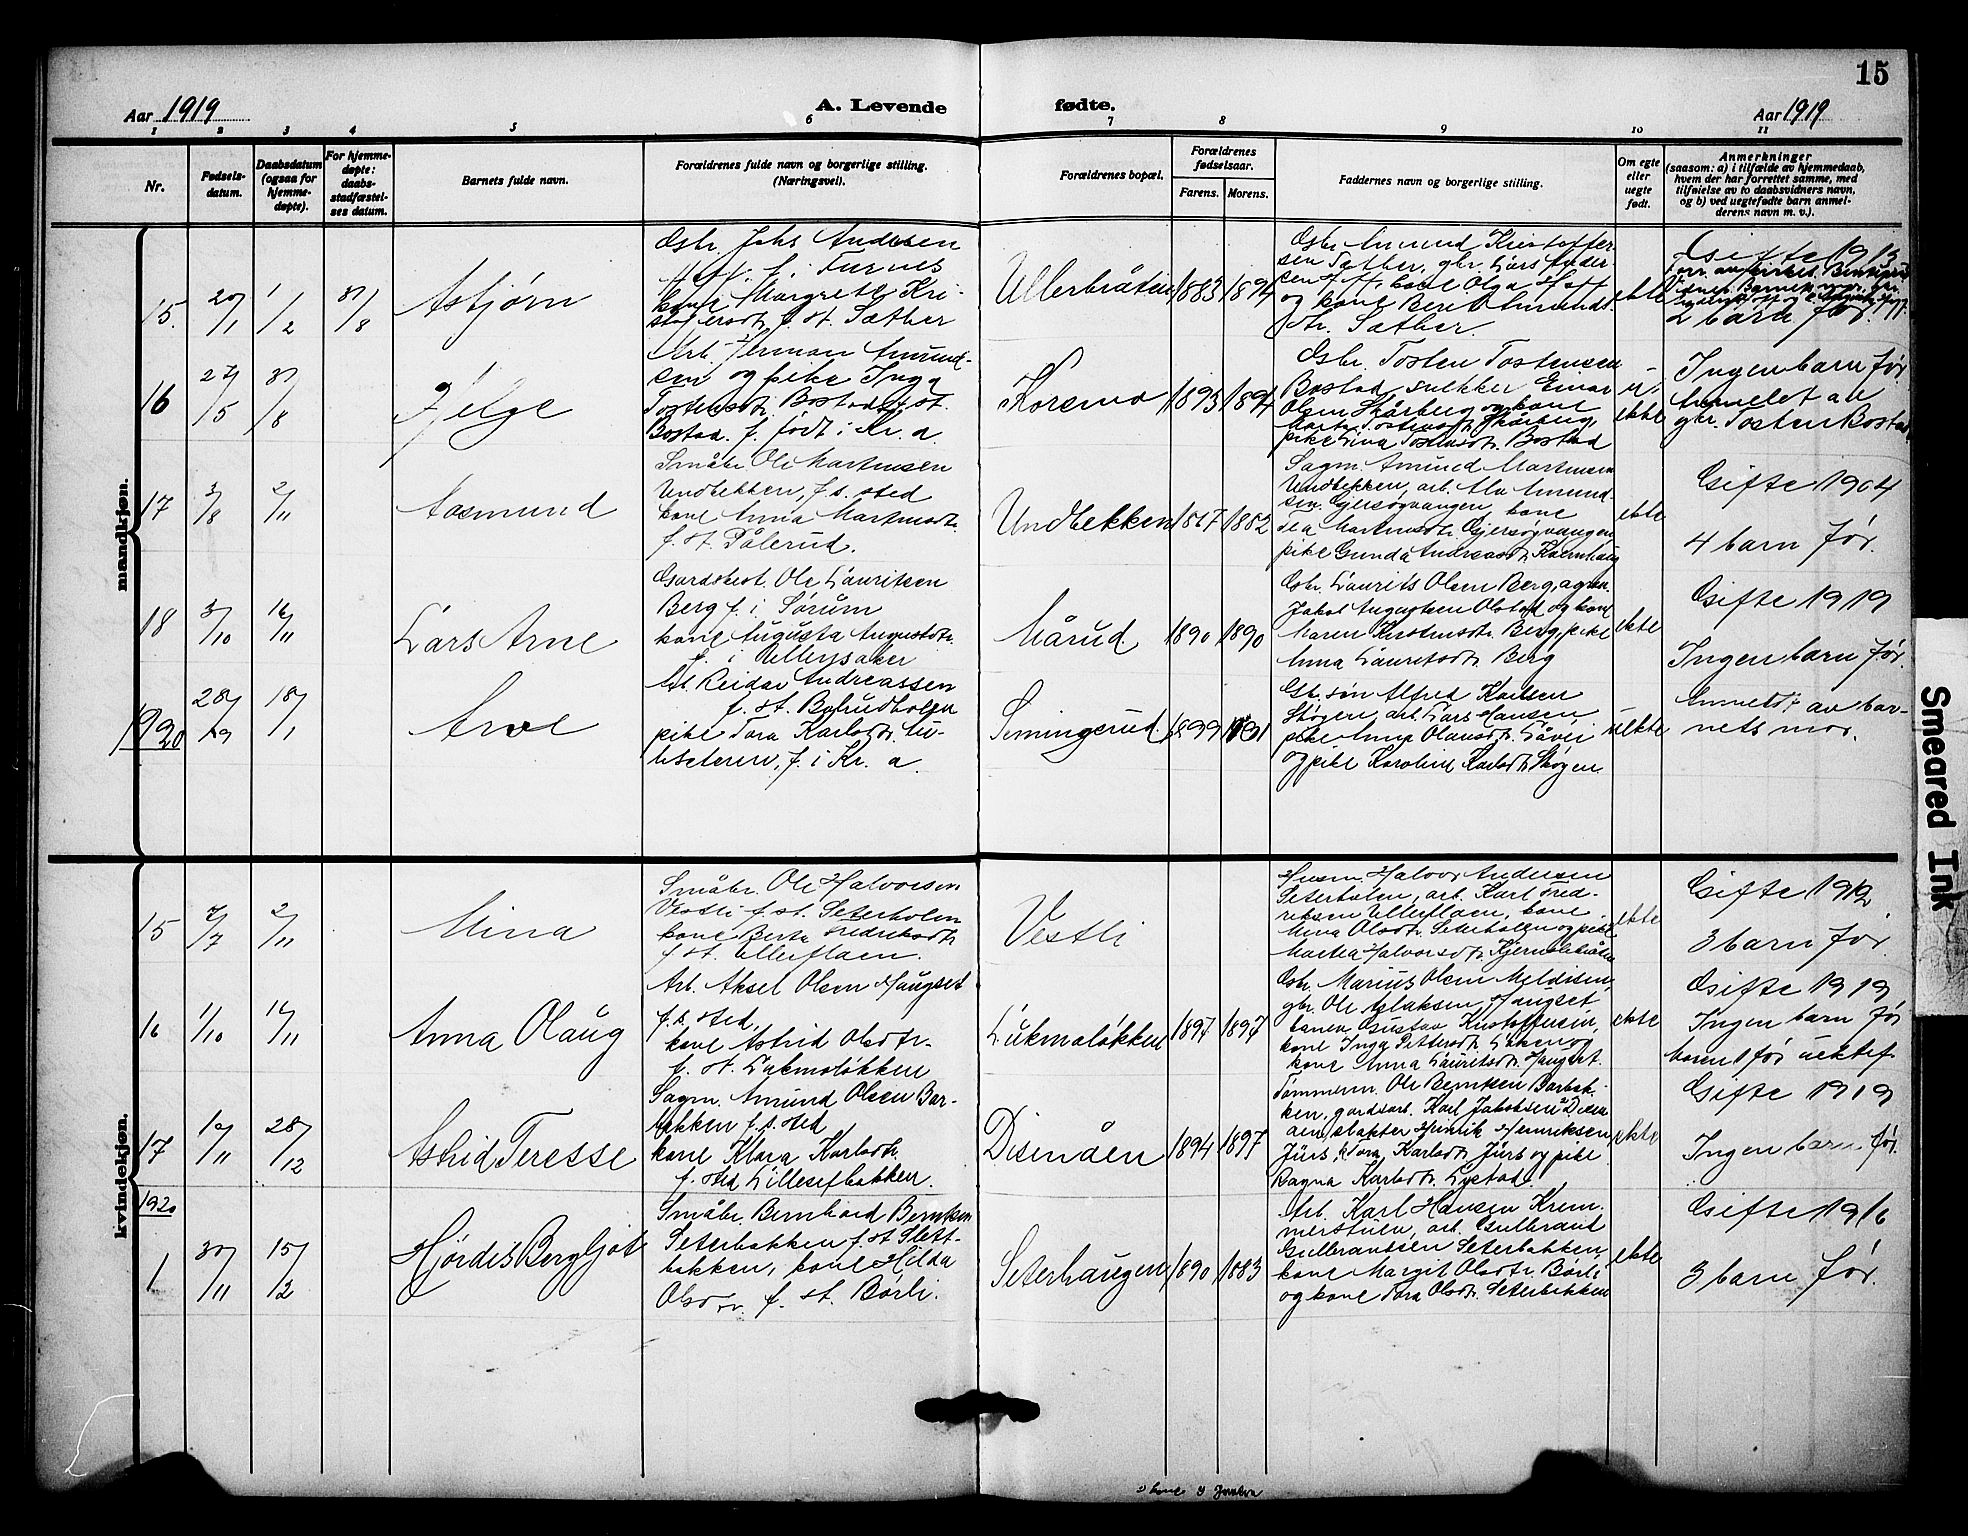 15
Aar 1919
A. Levende fødte.
Aar 1919
1 2 3 4 5 6 7 8 9 10 11
Nr.
Fødsels-
datum.
Daabsdatum
(ogsaa for
hjemme-
døpte).
For hjemme-
døpte:
daabs-
stadfæstel-
ses datum.
Barnets fulde navn.
Forældrenes fulde navn og borgerlige stilling.
(Næringsvei).
Forældrenes bopæl.
Forældrenes
fødselsaar.
Farens. Morens.
Faddernes navn og borgerlige stilling.
Om egte
eller
uegte
født.
Anmerkninger
(saasom: a) i tilfælde av hjemmedaab,
hvem der har forrettet samme, med
tilføielse av to daabsvidners navn,
og b) ved uegtefødte barn anmel-
derens navn m. v.).
mandkjøn.
15.
20/1
1/2
31/8
Asbjørn
Gbr. Johs Andersen
Hoff f. i Furnes
kone Margrete Kri-
stofersdtr. f. st. Sæther
Ullerbråten
1883
1894
Gbr. Amund Kristoffer-
sen Sæther, gbr. Lars Ander-
sen Hoff, kone Olga Hoff
og kone Berte Amunds-
dtr. Sæther
ekte
Gifte 1913
2 barn før.
16
27/5
31/8
Helge
Arb. Herman Amund-
sen og pike Inga
Tostensdtr. Bostad st.
Bostad f. født i Kr.a.
Korsmo
1893
1894
Gbr. Tosten Tostensen
Bostad snekker Einar
Olsen Skårberg og kone
Marte Tostensdtr. Skårberg,
pike Lina Tostensdtr. Bostad
u-
ekte
Ingen barn før
Anmeldt av
gbr. Tosten Bostad
17
3/8
2/11
Aasmund
Småbr. Ole Martinsen
Undbekken, f. s. sted
kone Anna Martinsdtr.
f. st. Pålerud.
Undbekken
1882
Sagm. Amund Martinsen
Undbekken, arb. Ola Amund-
sen Gjersøgvangen, kone
Martinsdtr. Gjersøgvangen
pike Gunda Andreasdtr.
ekte
Gifte 1904
4 barn før.
18
3/10
16/11
Lars Arne
Gardsbest. Ole Lauritsen
Berg f. i Sørum
kone Augusta Augustdtr.
f. i Ullensaker
Mårud
1890
1890
Gbr. Laurits Olsen Berg, agron.
Jakob Augustsen Olstad og kone
Maren Kristensdtr. Berg, pike
Anna Lauritsdtr. Berg
ekte
Gifte 1919
Ingen barn før.
1920
28/9
18/1
Arve
Arb. Reidar Andreassen
f. st. Bolrudholen
pike Tora Karlsdtr.
f. i Kr. a.
Semingerud
1899
Gbr. søn Alfred Karlsen
Skogen, arb. Lars Hansen,
pike Anna Olausdtr. Håvei
og pike Karoline Karlsdtr. Skogen
uekte
Anmeldt av bar-
nets mor.
kvindekjøn.
15
7/7
2/11
Mina
Småbr. Ole Halvorsen
Vestli f. st. Seterholen
kone Berta Fredriksdtr.
f. st. Ullerflaen.
Vestli
Husm. Halvor Andersen
Seterholen, arb. Karl Fred-
riksen Ullerflaen, kone
Mina Olsdtr. Seterholen og pike
Martea Halvorsdtr.
ekte
Gifte 1912
3 barn før.
16
1/10
16/11
Anna Olaug
Arb. Aksel Olsen Haugset
f. s. sted,
kone Astrid Olsdtr.
f. st. Lukmoløkken
Lukmoløkken
1897
1897
Gbr. Marius Olsen Meldisen,
gbr. Ole Aslaksen Haugset
Gustav Kristoffersen,
kone Inga Pettersdtr. Liken og
kone Anna Lauritsdtr. Haugset.
ekte
Gifte 1919
Ingen barn før
barn 1 før uektef.
17
19/11
28/12
Astrid Teresse
Sagm. Amund Olsen Bar-
bakken f. s. sted
kone Klara Karlsdtr.
f. sted Lillesefbakken.
Disenåen
1894
1897
Tømmerm. Ole Berntsen Barbak-
ken, gardsarb. Karl Jakobsen Disen-
åen, slakter Henrik Henriksen
Jürs, Tora Karlsdtr. Jürs og pike
Ragna Karlsdtr. Lystad.
ekte
Gifte 1919
Ingen barn før.
1920
1
30/11
15/2
Hjørdis Bergljot
Småbr. Bernhard Berntsen
Seterbakken f. st. Slett-
bakken, kone Hilda
Olsdtr. f. st. Børli.
Seterhaugen
1890
1883
Arb. Karl Hansen Krem-
merstuen, arb. Gulbrand
Gulbrandsen Seterbakken,
kone Margit Olsdtr. Børli
og kone Tora Olsdtr. Seterbakken
ekte
Gifte 1916
3 barn før.
Smeared Ink